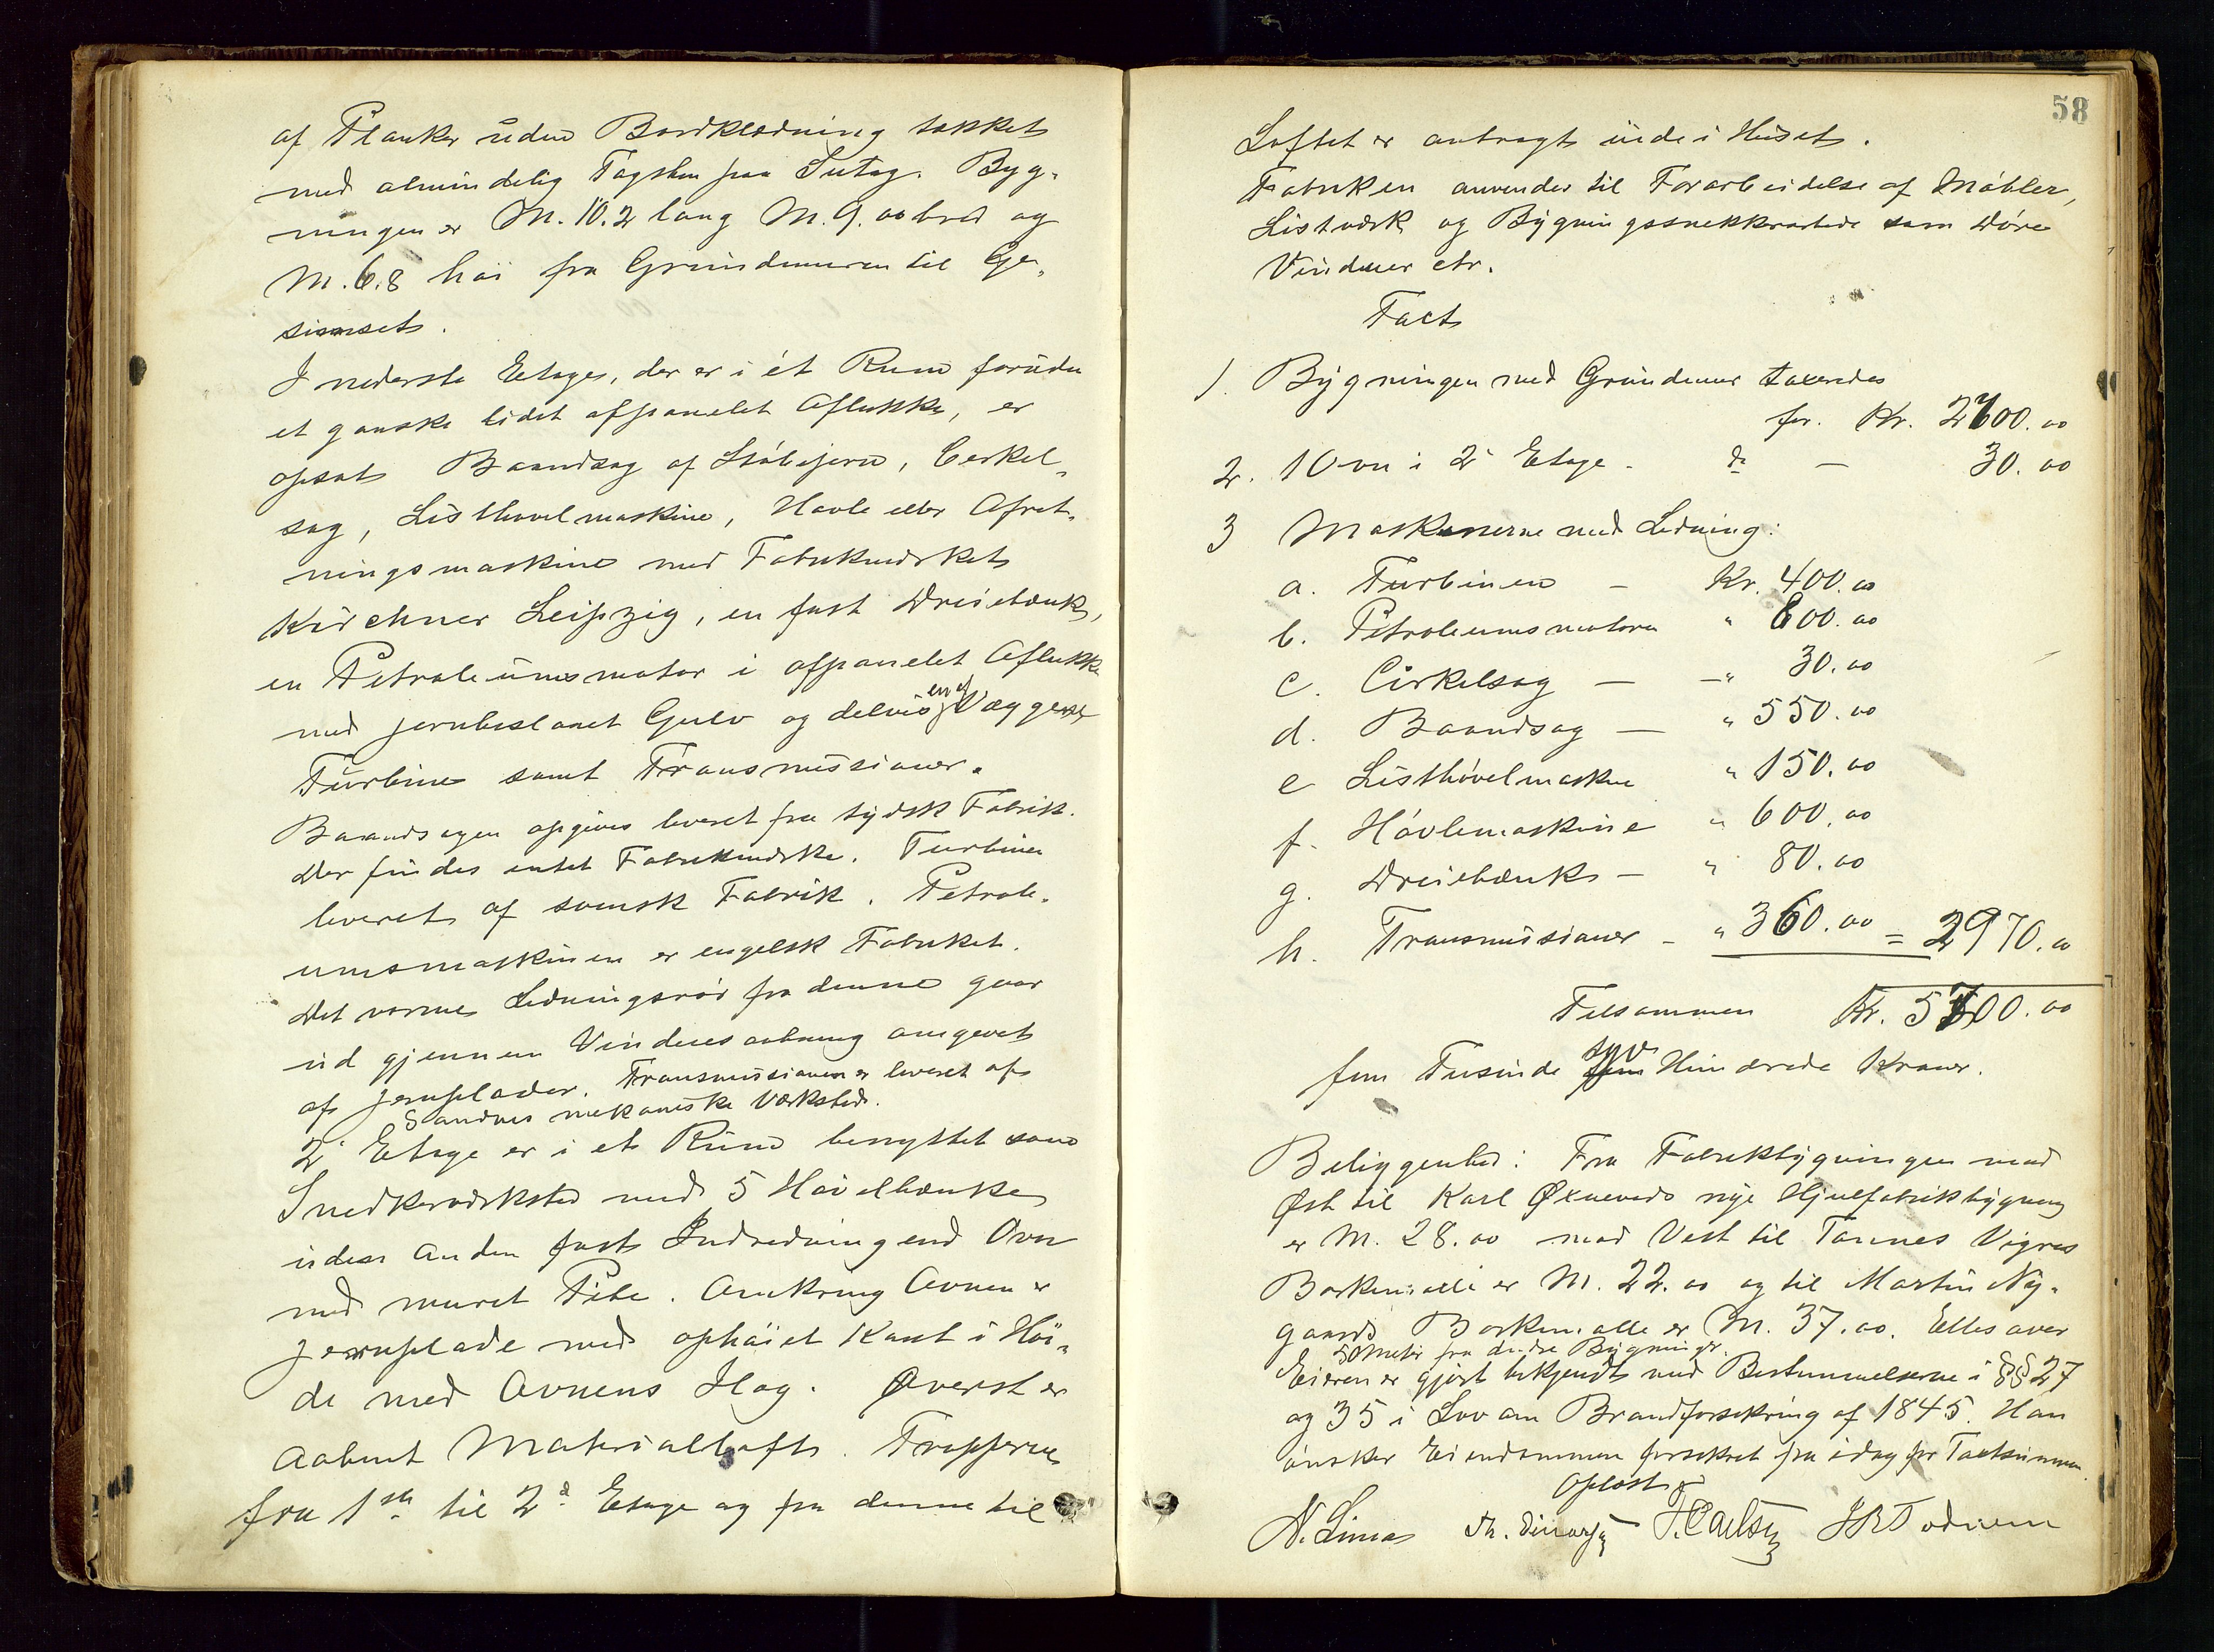 af Planker uden Bordklædning takket
med almindelig Tagsten paa Sutag. Byg-
ningen er M. 10.2 lang M. 9.00 bred og
M. 6.8 höi fra Grundmuren til Ge-
simset.
I nederste Etage, der er i ét Rum foruden
et ganske lidet afpanelet Aflukke, er
opsat Baandsag af Stöbejern, Cerkel-
sag, Listhövelmaskine, Hövle eller Afret-
ningsmaskine med Fabrikmærket
Kirchner Leipzig, en fast Dreiebænk,
en Petroleumsmotor i afpanelet Aflukke
med jernbeslaaet Gulv og delvis en af Væggene
Turbine samt Transmissioner.
Baandsagen opgives leveret fra tydsk Fabrik.
Der findes intet Fabrikmærke. Turbinen
leveret af svensk Fabrik. Petrole-
umsmaskinen er engelsk Fabrikat.
Det varme Ledningsrör fra denne gaar
ud gjennem Vinduesaabning omgivet
af Jernplader. Transmissionen er leveret af
Sandnes mekaniske Værksted.
2' Etage er i et Rum benyttet som
Snedkerværksted med 5 Hövelbænke
uden anden fast Indredning end Ovn
med muret Pibe. Omkring Ovnen er
Jernplade med ophöiet Kant i Höi-
de med Ovnens Ilag. Överst er
aabent Materialloft. Trapperne
fra 1ste til 2d Etage og fra denne til
58
Loftet er anbragt inde i Huset.
Fabriken anvendes til Forarbeidelse af Möbler,
Listværk og Bygningssnekkerarbeide som Döre
Vinduer etc.
Taxt
1. Bygningen med Grundmur taxeredes
for. Kr. 2700.00
2. 1 Ovn i 2' Etage - do — 30.00
3 Maskinerne med Ledning:
a. Turbinen — Kr. 400.00
b. Petroleumsmotoren " 800.00
c. Cirkelsag — — " 30.00
d. Baandsag — " 550.00
e Listhövelmaskine " 150.00
f. Hövlemaskine " 600.00
g. Dreiebænk — " 80.00
h. Transmissioner - " 360.00 = 2970.00
Tilsammen Kr. 5700.00
syv
fem Tusinde fem Hundrede Kroner.
Beliggenhed: Fra Fabrikbygningen mod
Øst til Karl Øxnevads nye Hjulfabrikbygning
er M. 28.00 mod Vest til Tönnes Vigres
Barkemölle er M. 22.00 og til Martin Ny-
gaards Barkemölle er M. 37.00. Ellers over
50 Meter fra andre Bygninger.
Eieren er gjort bekjendt med Bestemmelserne i §§ 27
og 35 i Lov om Brandforsikring af 1845. Han
önsker Eiendommen forsikret fra idag for Taxtsummen.
Oplæst
N. Lima T. Carlsen